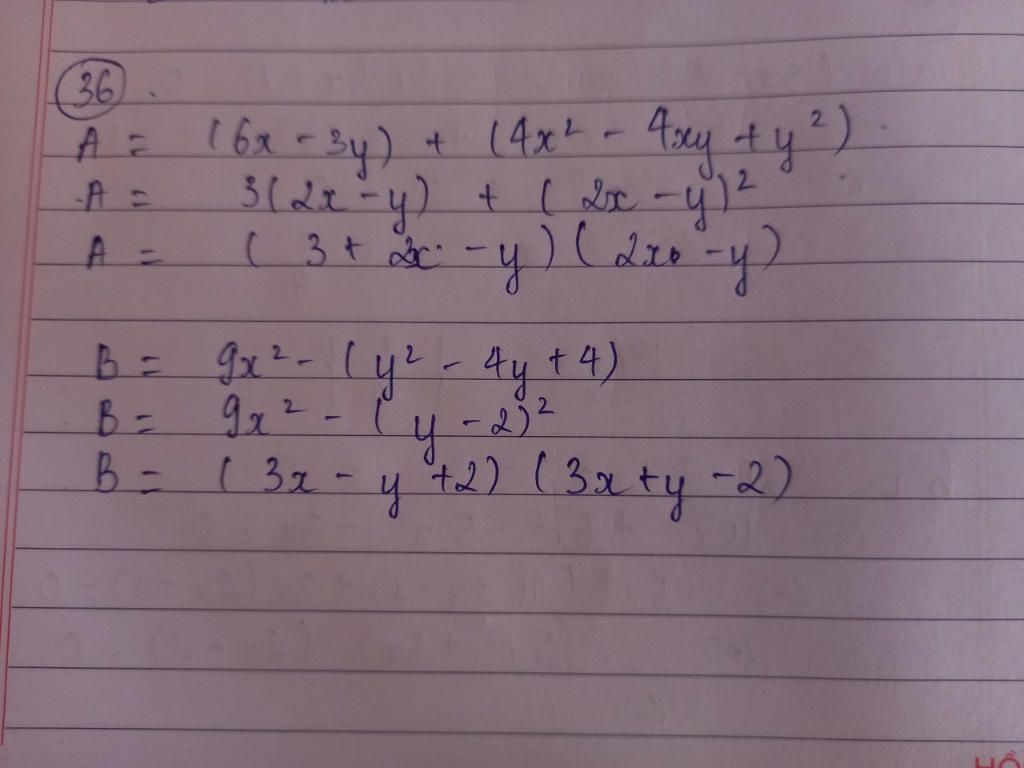 36.
A = (6x - 3y) + (4x² - 4xy + y²)
A = 3(2x - y) + (2x - y)²
A = (3 + 2x - y)(2x - y)
B = 9x² - (y² - 4y + 4)
B = 9x² - (y - 2)²
B = (3x - y + 2)(3x + y - 2)
HỒ